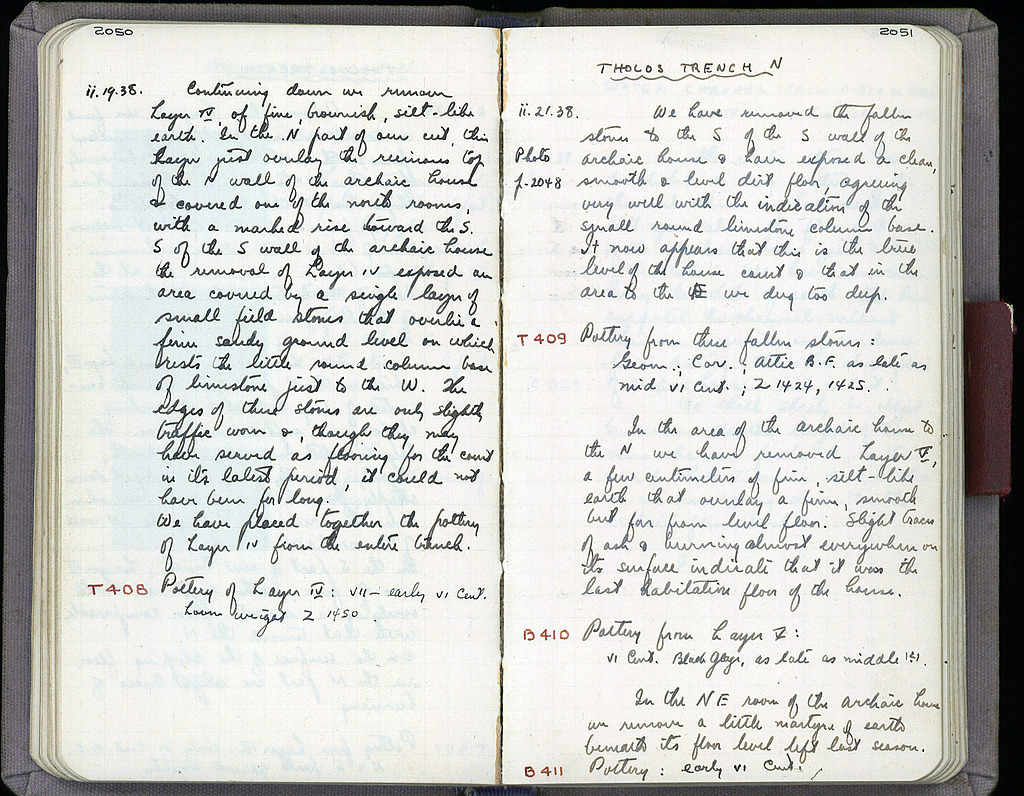 2050
ii.19.38. Continuing down we remove
Layer IV, of fine, brownish, silt-like
earth. In the N part of our cut, this
layer just overlay the ruinous top
of the N wall of the archaic house
& covered one of the north rooms,
with a marked rise toward the S.
S of the S wall of the archaic house
the removal of Layer IV exposed an
area covered by a single layer of
small field stones that overlie a
firm sandy ground level on which
rests the little round column base
of limestone just to the W. The
edges of these stones are only slightly
traffic worn &, though they may
have served as flooring for the court
in its latest period, it could not
have been for long.
We have placed together the pottery
of Layer IV from the entire trench.
T 408 Pottery of Layer IV: VII - early VI Cent.
Loom weight Z 1450
2051
THOLOS TRENCH N
ii.21.38. We have removed the fallen
stones to the S of the S wall of the
Photo archaic house & have exposed a clean,
p.2048 smooth & level dirt floor, agreeing
very well with the indication of the
small round limestone column base.
It now appears that this is the true
level of the house court & that in the
area to the E we dug too deep.
T 409 Pottery from these fallen stones:
Geom., Cor., Attic B.F. as late as
mid VI Cent.; Z 1424, 1425.
In the area of the archaic house to
the N we have removed Layer V,
a few centimeters of firm, silt-like
earth that overlay a firm, smooth
but far from level floor. Slight traces
of ash & burning almost everywhere on
its surface indicate that it was the
last habitation floor of the house.
B 410 Pottery from Layer V:
VI Cent. Black Glaze, as late as middle
In the NE room of the archaic house
we remove a little martyr of earth
beneath its floor level left last season.
B 411 Pottery: early VI Cent.